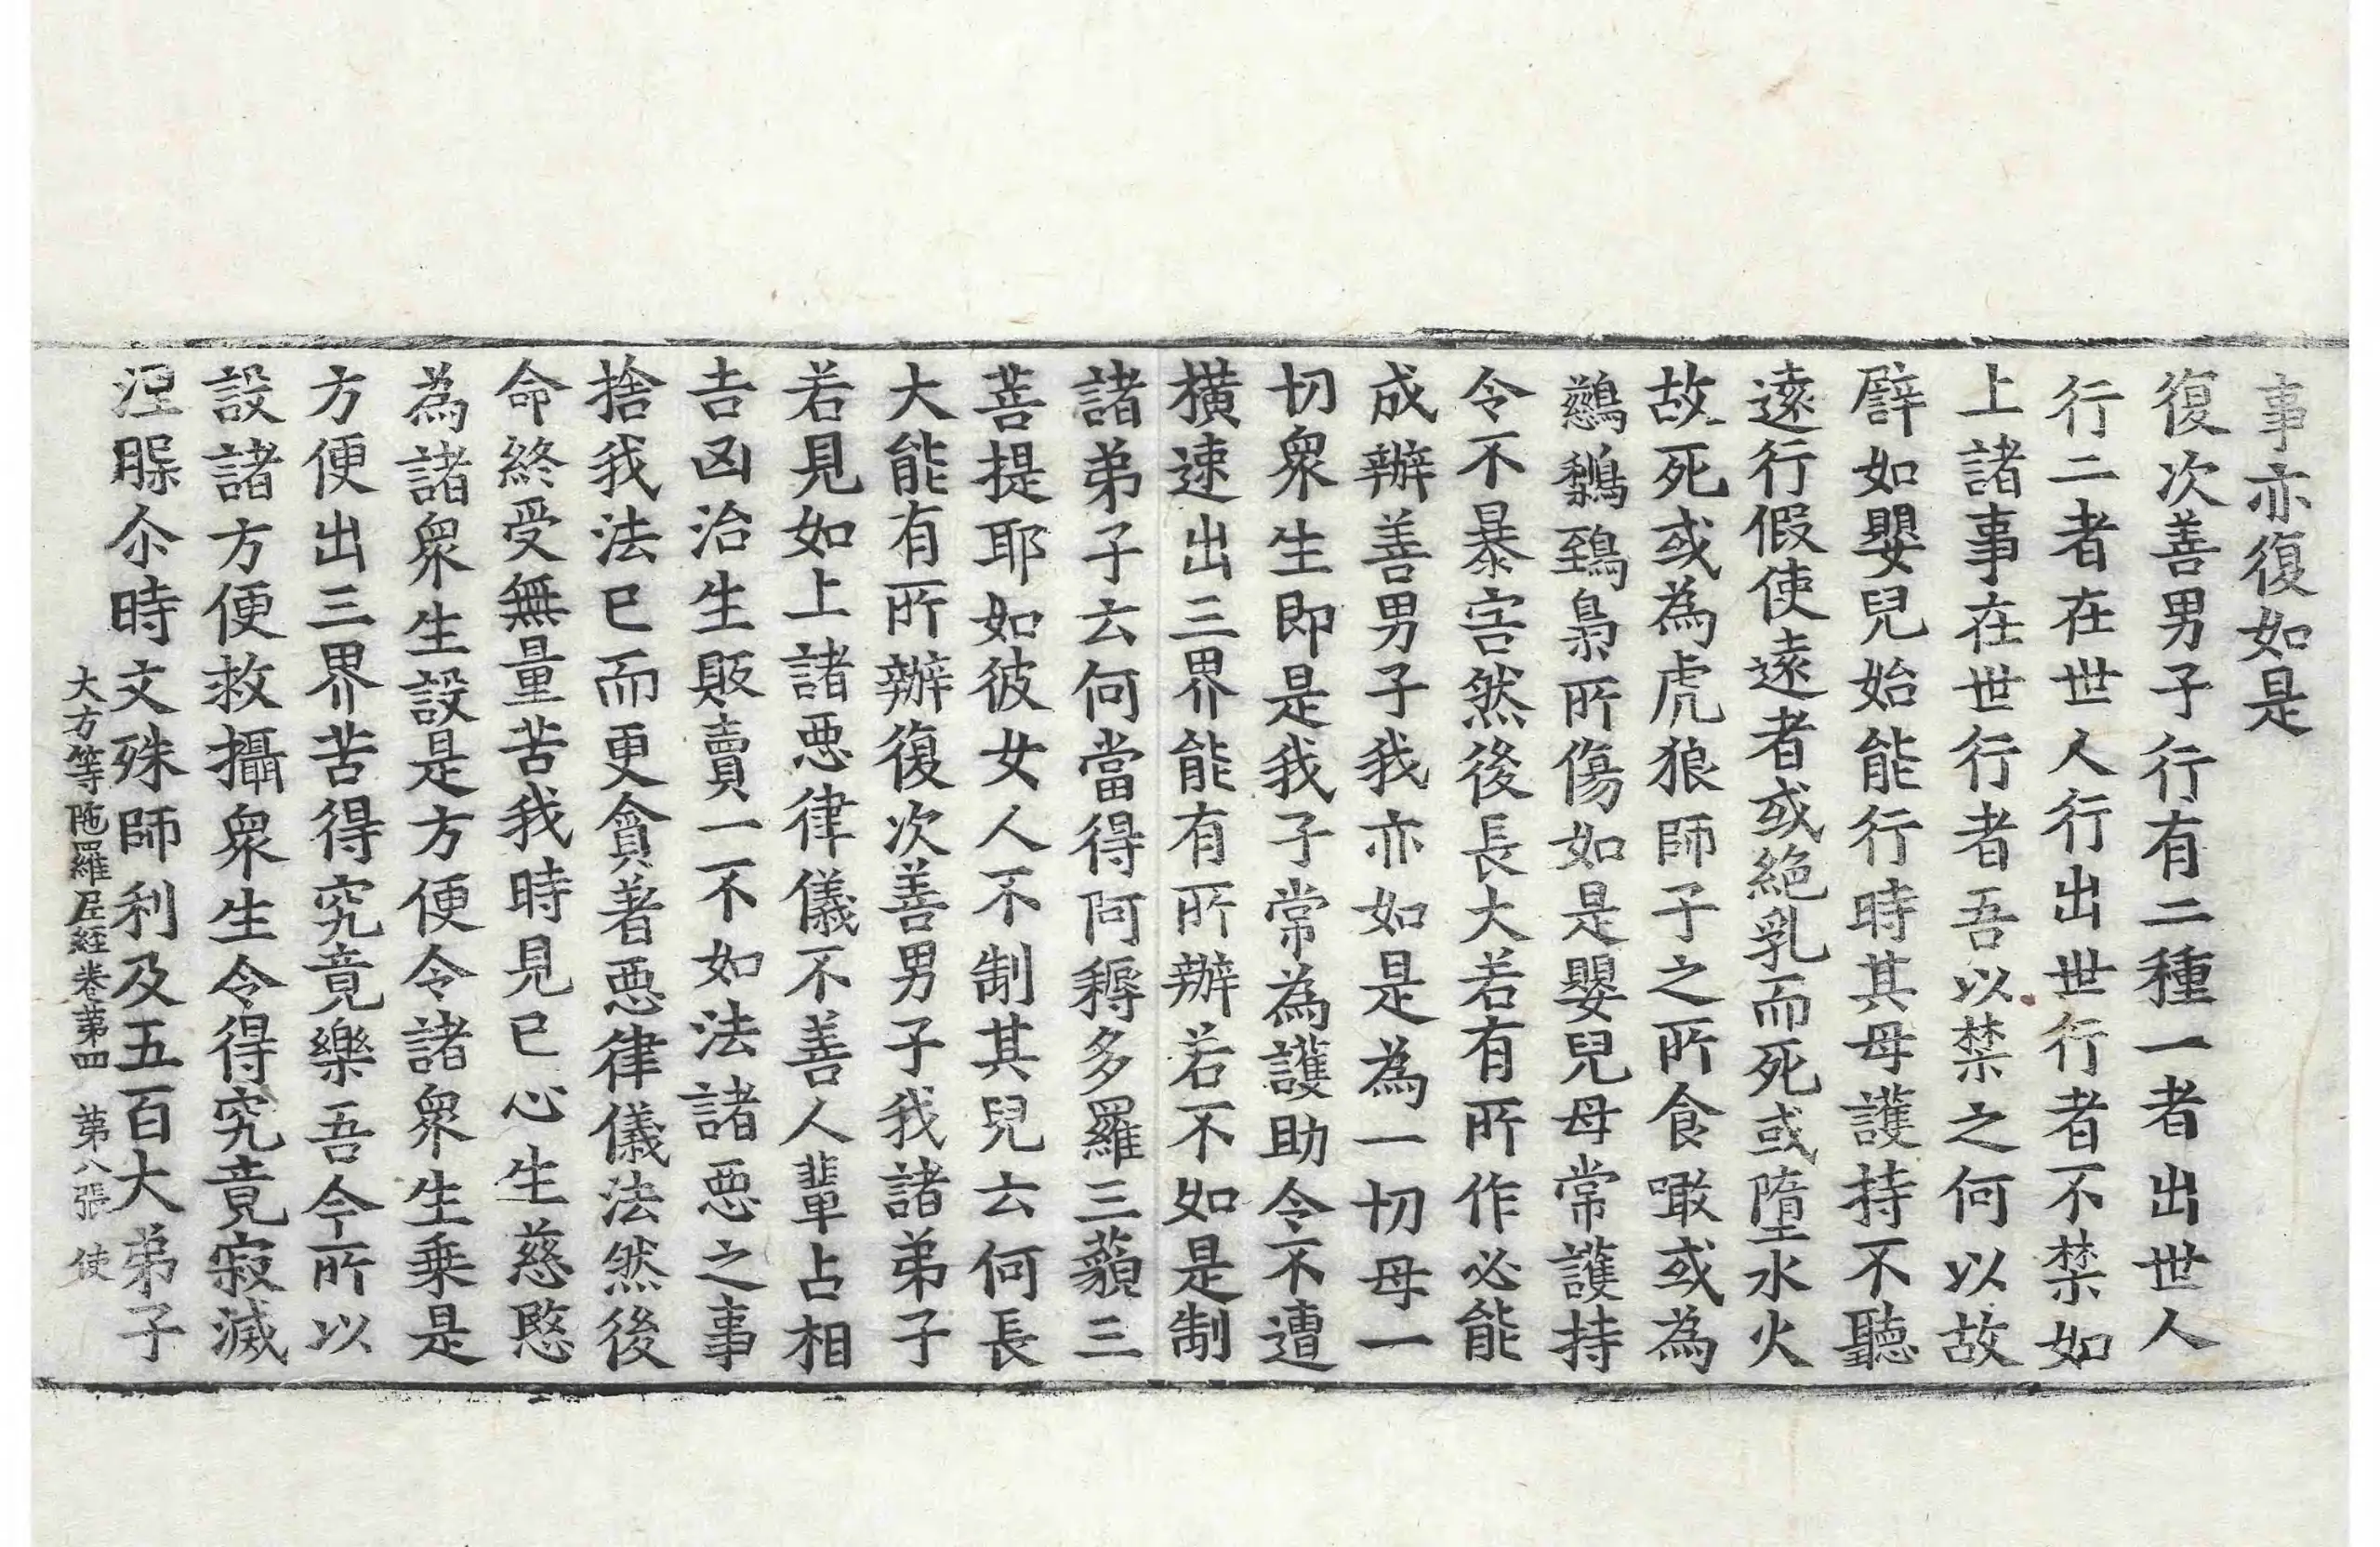 事亦復如是
復次善男子行有二種一者出世人
行二者在世人行出世行者不禁如
上諸事在世行者吾以禁之何以故
譬如嬰兒始能行時其母護持不聽
遠行假使遠者或絶乳而死或墮水火
故死或為虎狼師子之所食噉或為
鷀鵚鵄梟所傷如是嬰兒母常護持
令不暴害然後長大若有所作必能
成辦善男子我亦如是為一切母一
切衆生即是我子常為護助令不遭
橫速出三界能有所辦若不如是制
諸弟子云何當得阿耨多羅三藐三
菩提耶如彼女人不制其兒云何長
大能有所辦復次善男子我諸弟子
若見如上諸惡律儀不善人輩占相
吉凶治生販賣一不如法諸惡之事
捨我法已而更貪著惡律儀法然後
命終受無量苦我時見已心生慈愍
為諸衆生設是方便令諸衆生乗是
方便出三界苦得究竟樂吾今所以
設諸方便救攝衆生令得究竟寂滅
涅槃尒時文殊師利及五百大弟子
大方等陁羅尼経卷苐四　苐八張　使